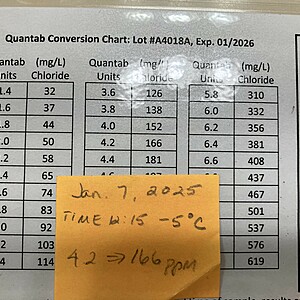 Quantab Conversion Chart: Lot #A4018A, Exp. 01/2026
antab (mg/L) Quantab (mg/L) Quantab (mg/L)
nits Chloride Units Chloride Units Chloride
1.4 32 3.6 126 5.8 310
1.6 37 3.8 138 6.0 332
1.8 44 4.0 152 6.2 356
.0 50 4.2 166 6.4 381
.2 58 4.4 181 6.6 408
.4 65 437
.6 74 467
.8 83 501
.0 92 537
.2 103 576
.4 114 619
Jan. 7, 2025
TIME 12:15 -5°C
4.2 ⇒ 166 ppm